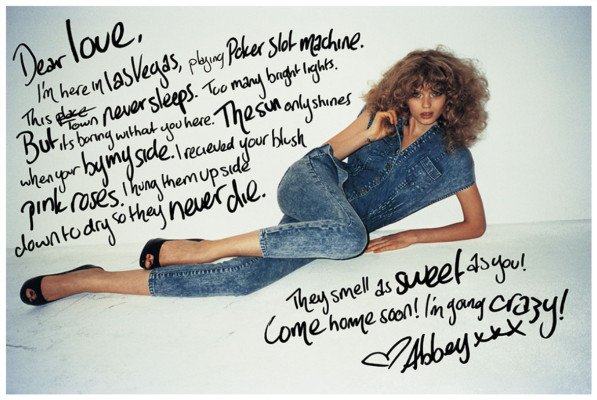 Dear love,
I'm here in las Vegas, playing Poker slot machine.
This place Town never sleeps. Too many bright lights.
But its boring without you here. The sun only shines
when your by my side. I recieved your blush
pink roses. I hung them up side
down to dry so they never die.
They smell as sweet as you!
Come home soon! I'm going crazy!
♡ Abbey xxx